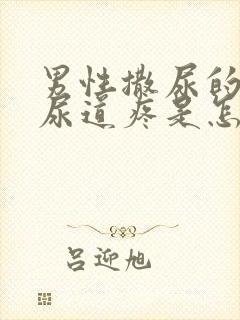 男性撒尿的
尿道疼是怎
吕迎旭